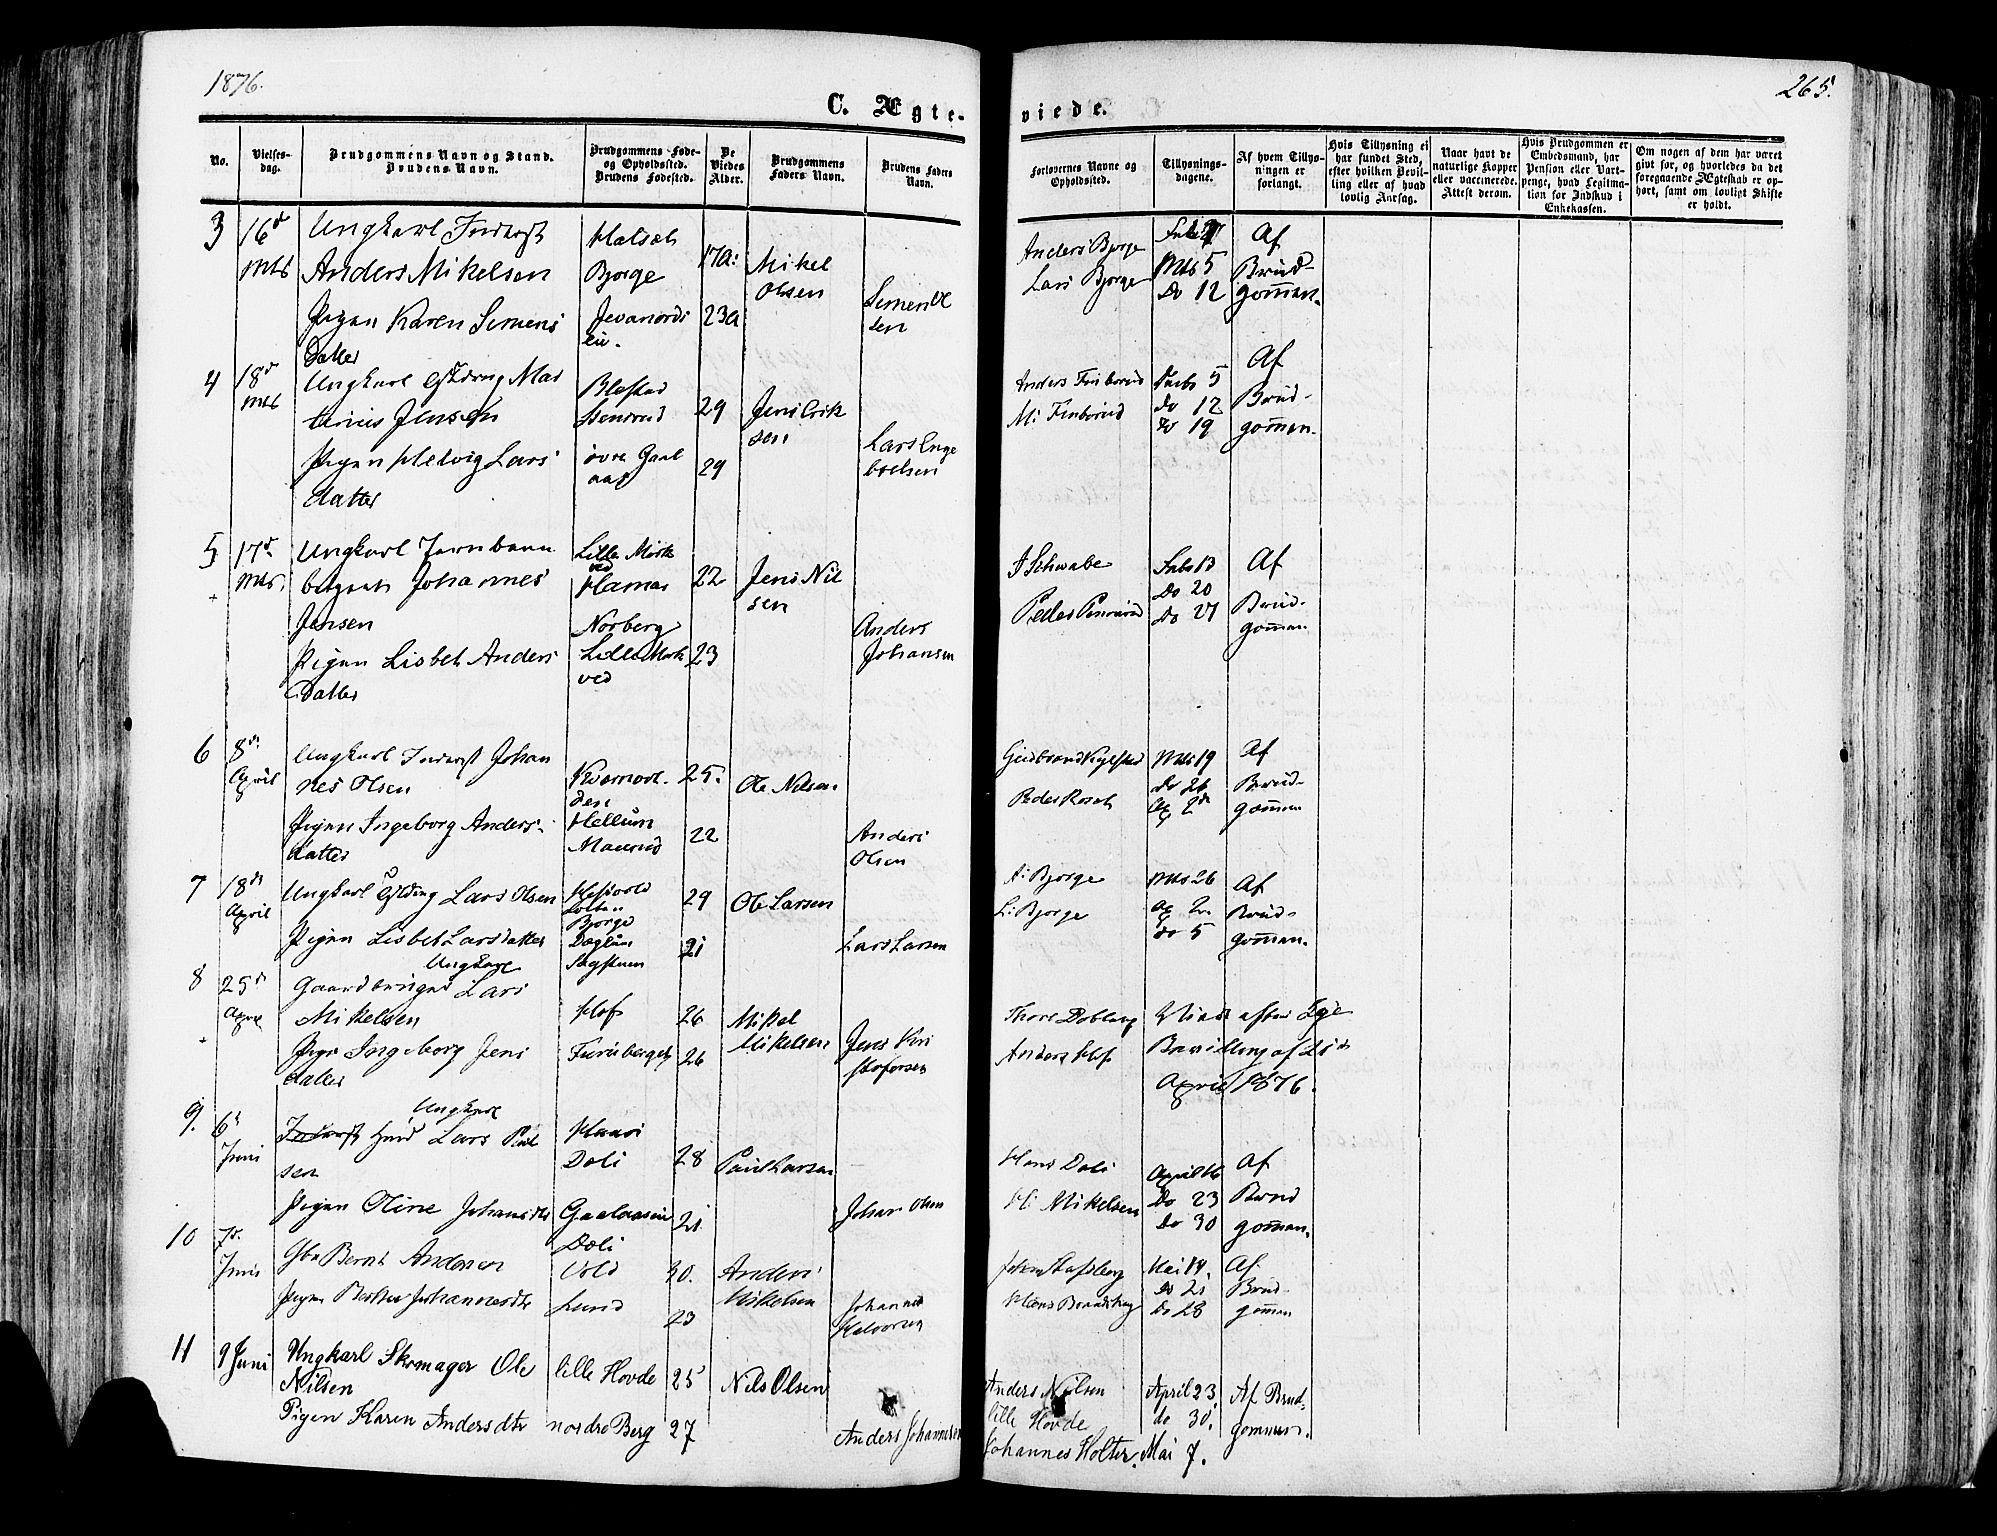 1876.
265.
C. Ægte-
viede.
No.
Vielses-
dag.
Brudgommens Navn og Stand.
Brudens Navn.
Brudgommens Føde-
og Opholdssted.
Brudens Fødested.
De
Viedes
Alder.
Brudgommens
Faders Navn.
Brudens Faders
Navn.
Forlovernes Navne og
Opholdssted.
Tillysnings-
dagene.
Af hvem Tillys-
ningen er
forlangt.
Hvis Tillysning ei
har fundet Sted,
efter hvilken Bevil-
ling eller af hvad
lovlig Aarsag.
Naar havt de
naturlige Kopper
eller vaccinerede.
Attest derom.
Hvis Brudgommen er
Embedsmand, har
Pension eller Vart-
penge, hvad Legitima-
tion for Indskud i
Enkekassen.
Om nogen af dem har været
givt før, og hvorledes da det
foregaaende Ægteskab er op-
hørt, samt om lovligt Skifte
er holdt.
3
16d
Mts
Ungkarl Inderst
Anders Mikelsen
Pigen Karen Simens
Datter
Bjørge
23a
Mikel
Olsen
Simen
sen
Anders Bjørge
Lars Bjørge
Mts 5
Do 12
Af
Brud-
gommen.
4
18d
Mts
Ungkarl
tinius Jensen
Pigen Hedvig Lars
datter
øvre Gaal
aas
29
29
Jens Erik
sen
Lars Enge
bretsen
Anders Finborud
M. Finborud
5
do 12
do 19
Af
Brud-
gommen.
5
17d
Mts.
Ungkarl Jernbane
betjent Johannes
Jensen
Pigen Lisbet Anders
Datter
Lille Mørk
ved
Hamar
Norberg
Lille Mørk
ved
22
23
Jens Nil
sen
Anders
Johansen
Schwabe
Peder
Do 20
Do 27
Af
Brud-
gommen
6
8d
April
Ungkarl Inderst Johan
nes Olsen
Pigen Ingeborg Anders-
datter
den
Hellum
25.
22
Ole Nilsen
Anders
Olsen
Gudbrand
Peder
Mts 19
do 26
Ap 2d
Af
Brud-
gommen
7
18d
April
Ungkarl Lars Olsen
Pigen Lisbet Larsdatter
Bjørge
29
21
Ole Larsen
Lars Larsen
A. Bjørge
L. Bjørge
Mts 26
Ap 2.
do 5
Af
Brud-
gommen.
8
25d
April
Ungkarl
Gaardbruger Lars
Mikelsen
Pige Ingeborg Jens
datter
Hof
Furuberget
26
26
Mikel
Mikelsen
Jens Kri
stofersen
Thore Dobloug
Anders Hof
Viede efter
Bevilling af 21de
April 1876.
9.
6d
Juni
Ungkarl
Inderst Lars Paul
sen
Pigen Oline Johansdtr
Dæli
Gaalaasen
Dæli
28
21
Paul Larsen
Johan Olsen
Hans Dæli
H. Mikelsen
April 16
Do 23
Do 30
Af
Brud
gomman.
10
7d.
Juni
Bernt Andersen
Pigen Berthe Johannesdtr
Vold
Lund
30.
23
Anders
Mikelsen
Johannes
Halvorsen
Mai 14.
Do 21
Do 28
Af.
Brud-
gommen
11
9 Juni
Ungkarl Skomager Ole
Nilsen
Pigen Karen Andersdtr
lille Hovde
nordre Berg
25
27
Nils Olsen
Anders Johannesen
Anders Nilsen
lille Hovde
Johannes Holter.
April 23.
do 30.
Mai 7.
Af Brud-
gommen.